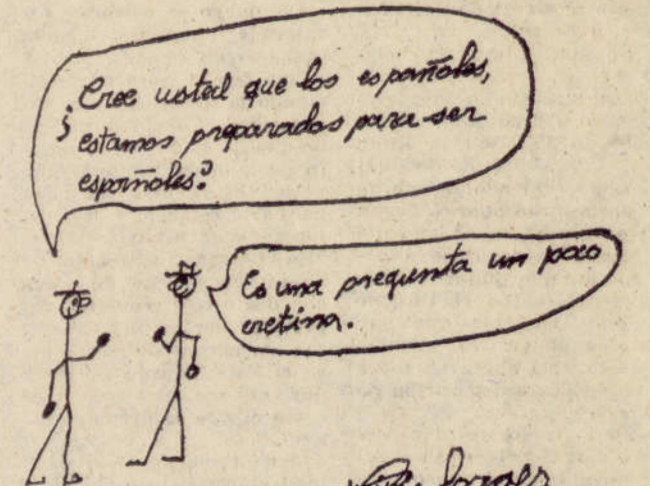 ¿Cree usted que los españoles,
estamos preparados para ser
españoles?
Es una pregunta un poco
cretina.